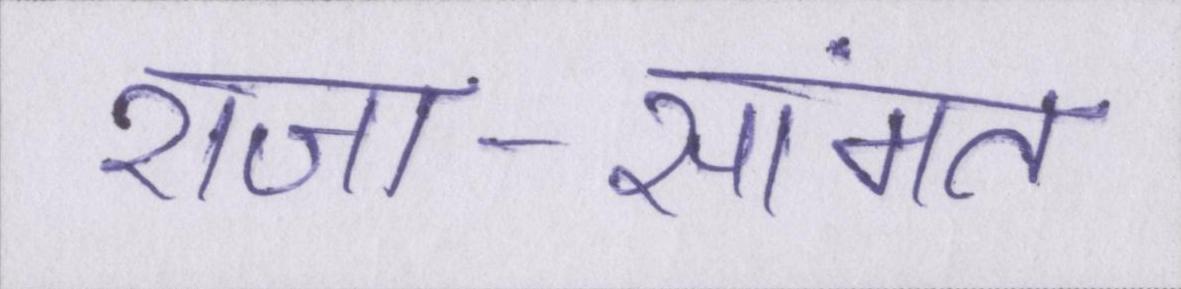 राजा-सांमत